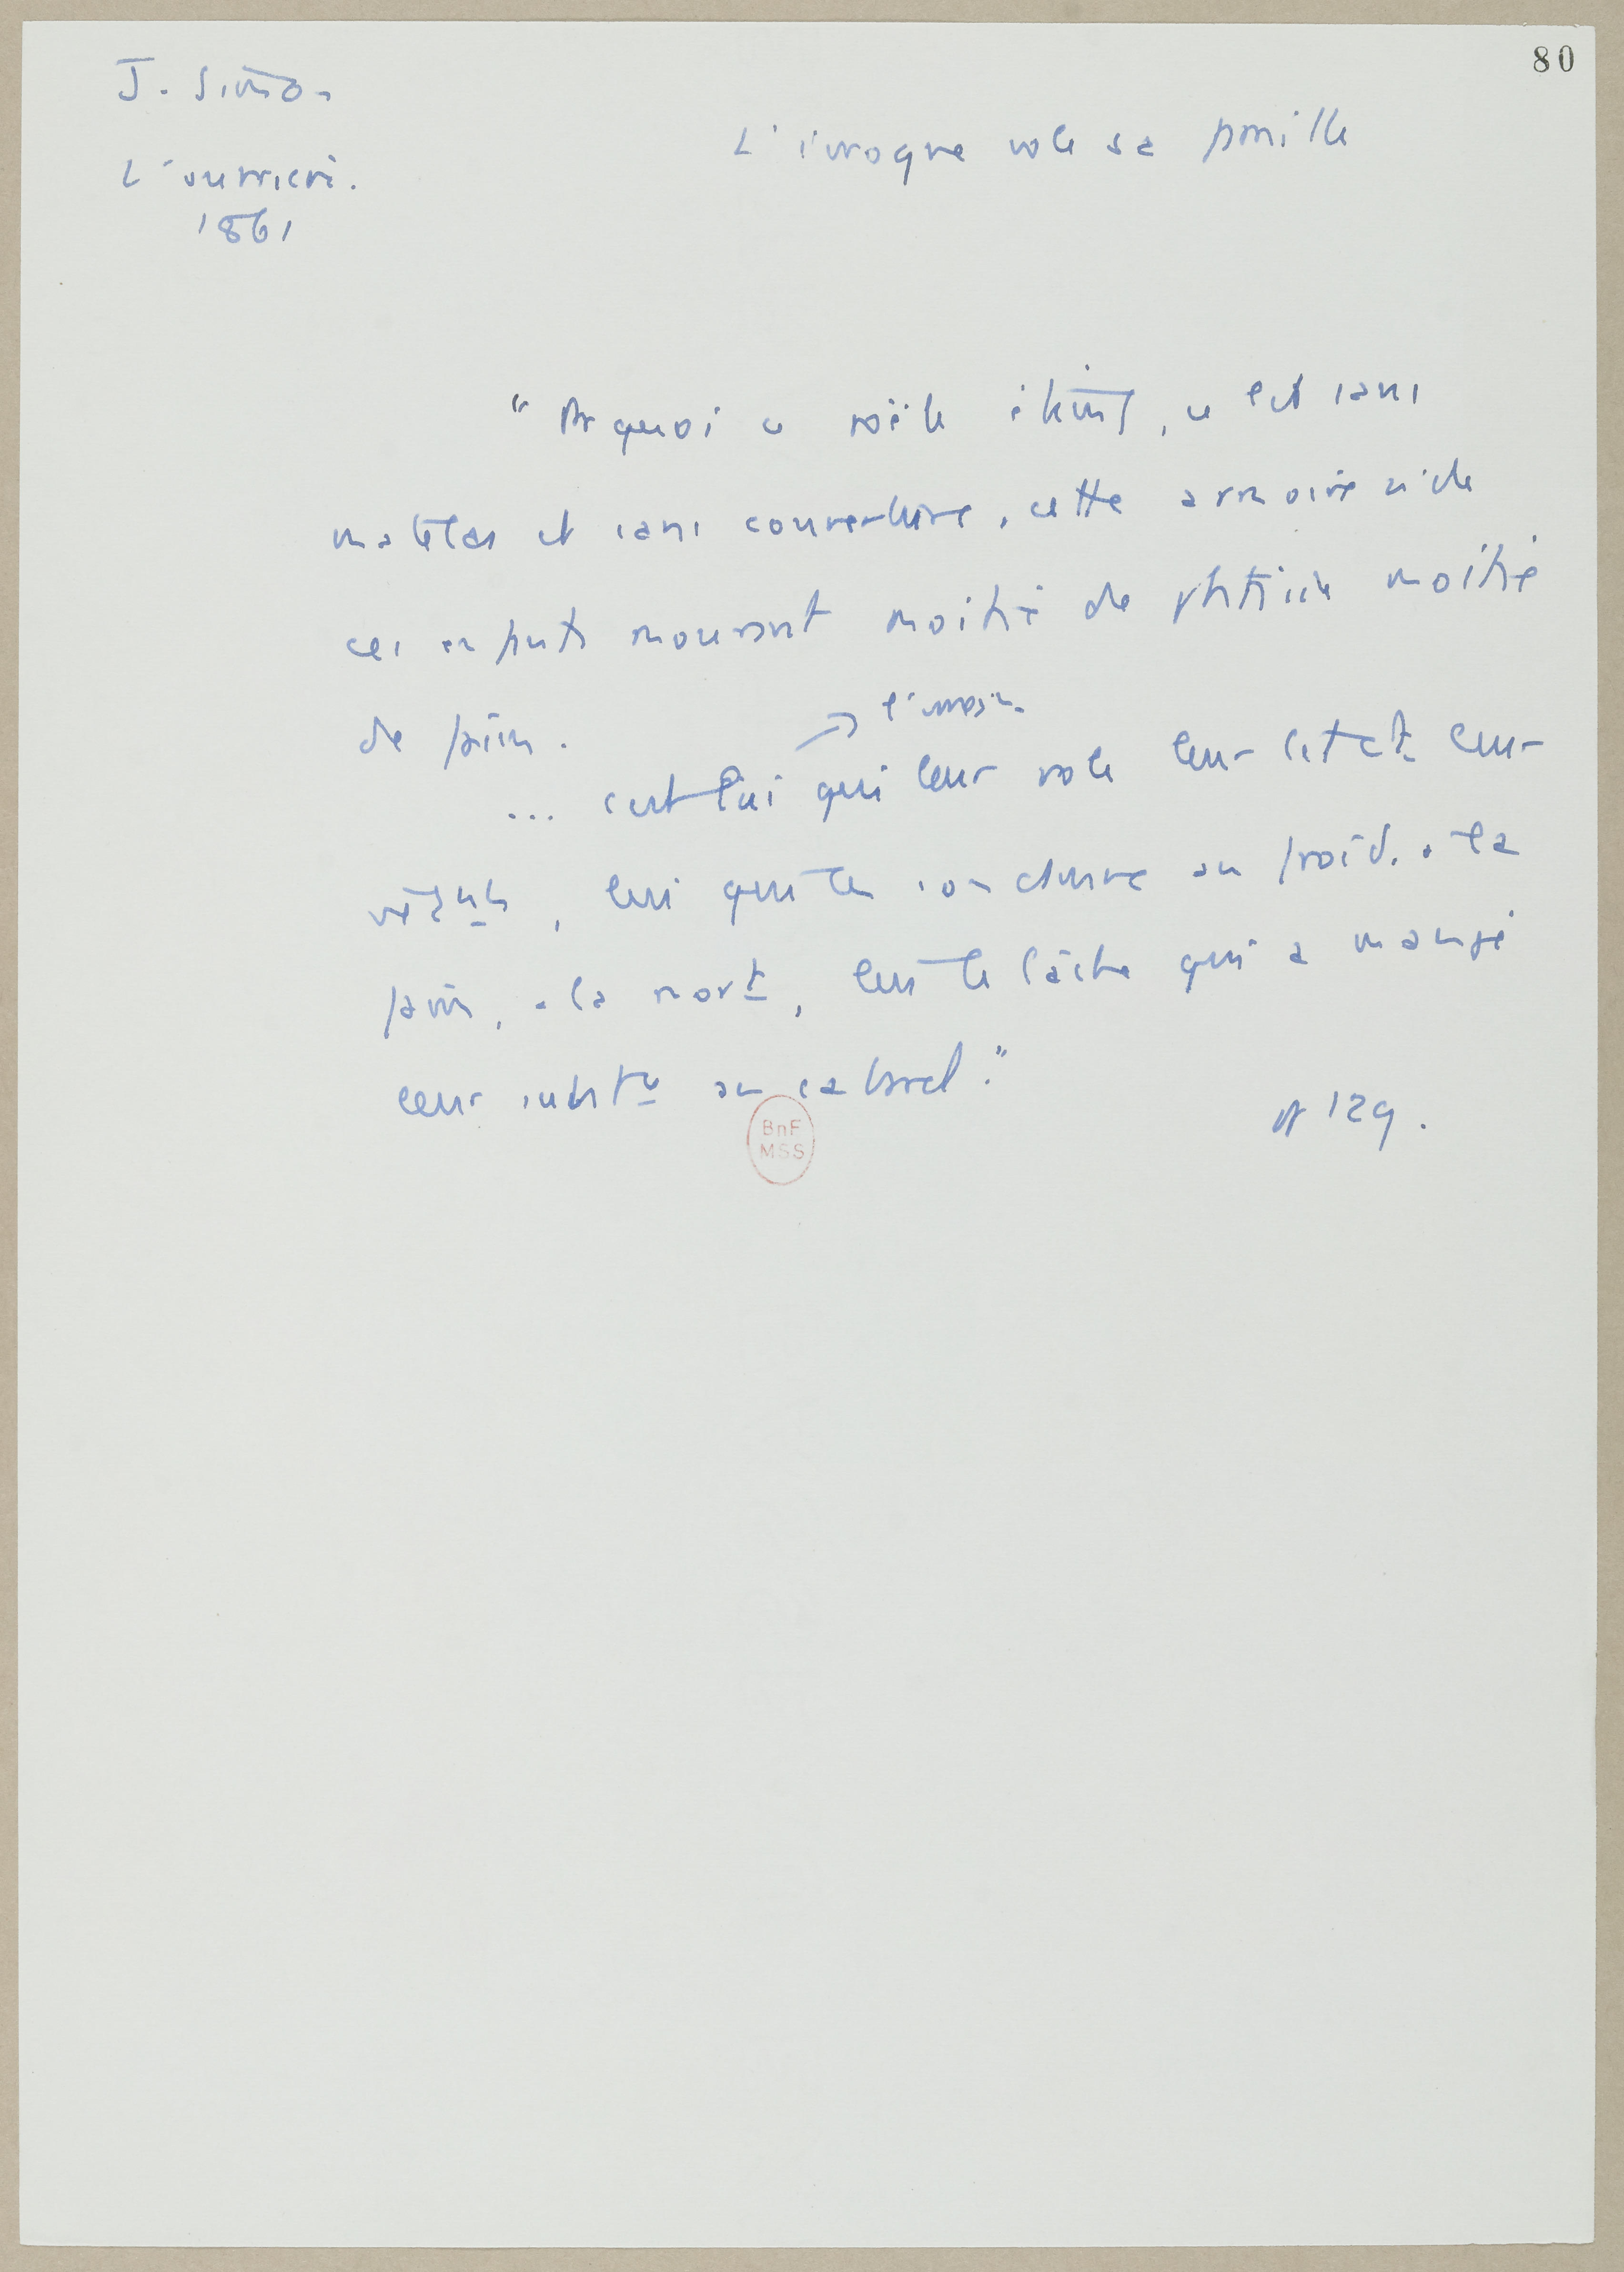 80
J. Simon
L'ouvrière.
1861
L'ivrogne vole sa famille
"Pourquoi ce poêle éteint, ce lit sans
matelas et sans couverture, cette armoire vide
ces enfants mourant moitié de phtisie moitié
de faim.
→ l'ivrogne
... c'est lui qui leur vole leur lit et leur
vêtements, lui qui les condamne au froid, à la
faim, à la mort, lui le lâche qui a mangé
leur substce au cabaret."
p 129.
BnF
MSS